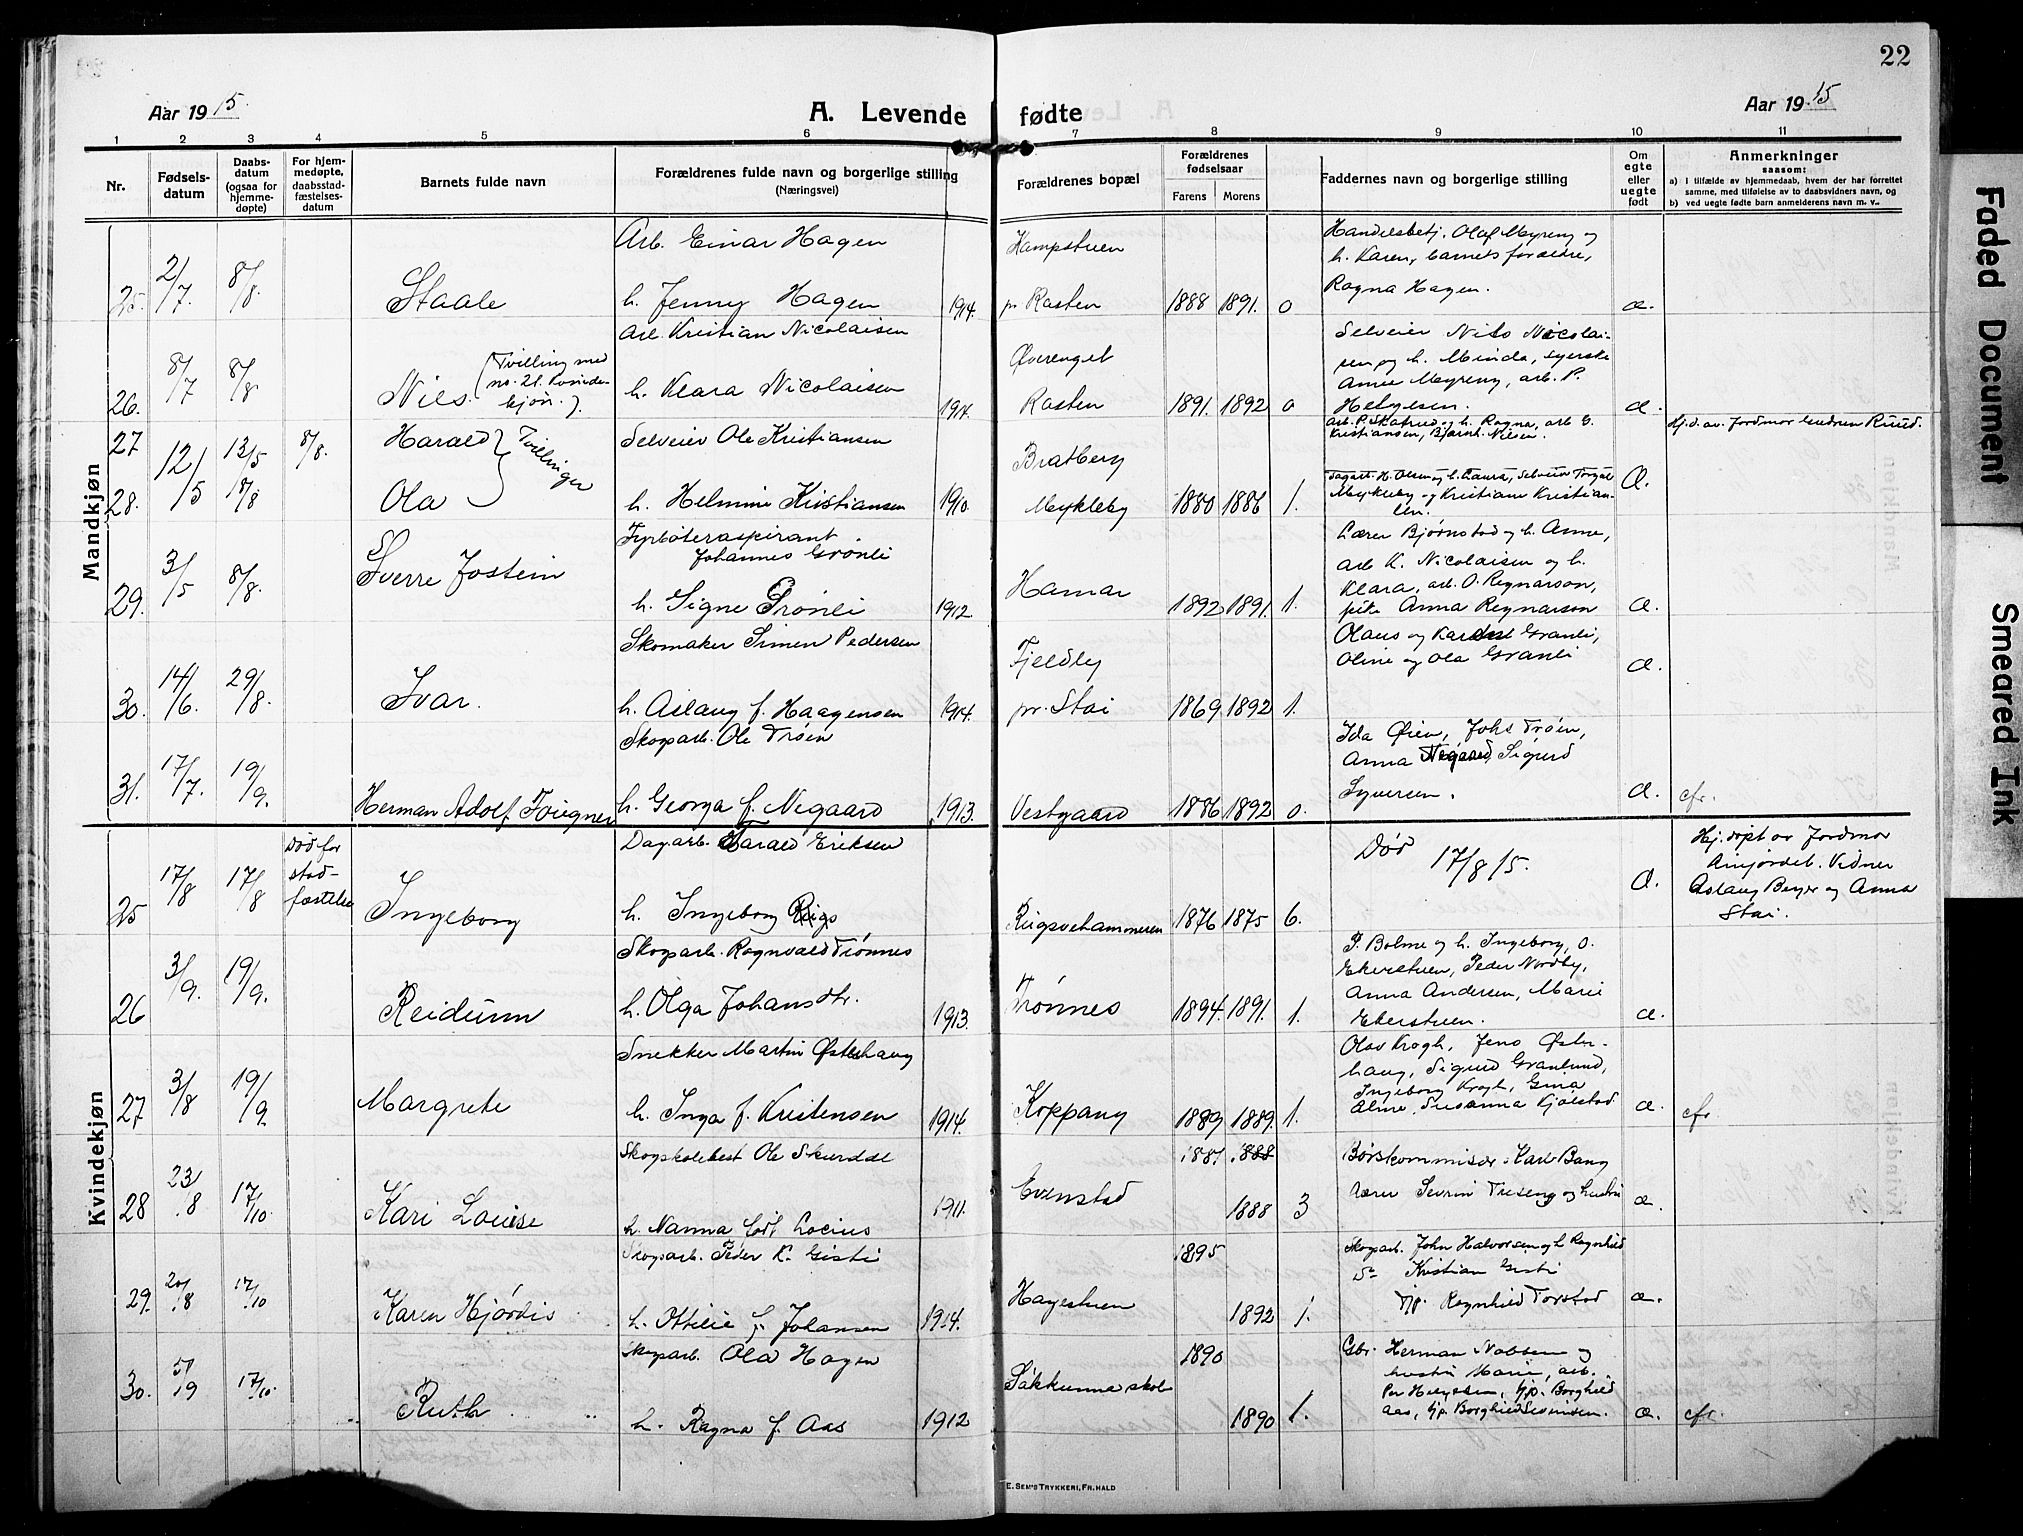 22
Aar 1915.
A. Levende fødte
Aar 1915
1 2 3 4 5 6 7 8 9 10 11
Nr.
Fødsels-
datum
Daabs-
datum
(ogsaa for
hjemme-
døpte)
For hjem-
medøpte,
daabsstad-
fæstelses-
datum
Barnets fulde navn
Forældrenes fulde navn og borgerlige stilling
(Næringsvei)
Forældrenes bopæl
Forældrenes
fødselsaar
Farens Morens
Faddernes navn og borgerlige stilling
Om
egte
eller
uegte
født
Anmerkninger
saasom:
a) I tilfælde av hjemmedaab, hvem der har forrettet
samme, med tilføielse av to daabsvidners navn, og
b) ved uegte fødte barn anmelderens navn m. v..
Mandkjøn
Arb. Einar Hagen Kampstuen Handelsbetj. Olaf Myreng og
h. Karen, barnets forældre,
25. 2/7. 8/8. Staale h. Jenny Hagen 1914. pr. Rasten 1888 1891. 0 Ragna Hagen. æ.
Arb. Kristian Nicolaisen Øverenget Selveier Nils Nicolai-
sen og h. Minda, syerske
Anne Myreng, arb. P.
26. 8/7 8/8 Nils. (Tvilling med
no. 21. kvinde-
kjøn.). h. Klara Nicolaisen 1914. Rasten 1891. 1892 0 Helgesen. æ.
27 12/5 13/5 8/8. Harald } Tvillinger Selveier Ole Kristiansen Bratberg arb. P. Skafrud og h. Ragna, arb. G.
Kristiansen, Bjarnh. Nilsen. Hj.d. av. Jordmor Gudrun Ruud.
28. 18/8 Ola h. Helmine Kristiansen 1910. Mykleby 1880 1886 1. Dagarb. H. Olsen og h. Laura, Selveier Torgal
Mykleby og Kristiane Kristian-
sen. Æ.
Fyrbøteraspirant
Johannes Grønli Hamar Lærer Bjørnstad og h. Anne,
arb K. Nicolaisen og h.
Klara, arb. O. Regnarson,
29. 3/5 8/8. Sverre Jostein h. Signe Grønli 1912. 1892 1891. 1. pike Anna Regnarson æ.
Skomaker Simen Pedersen Fjeldby Olaus og Granli,
Oline og Ola Granli æ.
30. 14/6. 29/8. Ivar. h. Aslaug f. Haagensen 1914. pr. Stai 1869. 1892 1.
Skogsarb. Ole Trøen Ida Øien, Johs Trøen,
Anna Negaard, Sigurd
31. 17/7. 19/9. Herman Adolf h. Georga f. Negaard 1913. Vestgaard 1886 1892 0. Syversen. æ. cfr.
Kvindekjøn
Død før
stad-
fæstelse Dagarb. Harald Eriksen Død 17/8 15. Hj. døpt av Jordmor
Vidner
25 17/8 17/8 Ingeborg h. Ingeborg Riigs 1876 1875 6. æ. Aslaug Berger og Anna
Stai.
Skogsarb. Ragnvald Trønnes P. Bolme og h. Ingeborg, O.
Ekerstuen, Peder Nordby,
Anna Andersen, Marie
26 3/9. 19/9. Reidunn h. Olga Johansdtr. 1913. Trønnes 1894. 1891. 1. Ekerstuen. æ.
Snekker Martin Østerhaug Olav Krogh, Jens Øster-
haug, Sigurd Granlund,
Ingeborg Krogh, Gina
27 3/8 19/9 Margrete h. Inga f. Kristensen 1914. Koppang 1889 1889. 1. Alme, Susanna Kjølstad æ. cfr.
Skogskolebest Ole Skurdal 1881. 1888 Børskommisær Karl Bang
28 23/8 17/10. Kari Louise h. Nanna født Locius 1911. Evenstad 1888 3 lærer Sevrin og hustru æ.
Skogsarb. Peder K. Gisti 1895 Skogsarb. John Halvorsen og h Ragnhild
Do Kristian Gisti
29. 20/8 17/10 Karen Hjørdis h. Ottilie f. Johansen 1914. Hagestuen 1892 1. Tjp. Ragnhild Torstad æ.
Skogsarb. Ola Hagen 1890 Gbr. Herman Nabsen og
hustru Marie, arb.
Per Helgesen, tjp. Borghild
30. 5/9 17/10. Ruth h. Ragna f. Aas 1912 Søkkunna skole 1890 1. Aas, tjp. Borghild Sevrinsen. æ. cfr.
E. SEM'S TRYKKERI, FR.HALD
Faded Document
Smeared Ink